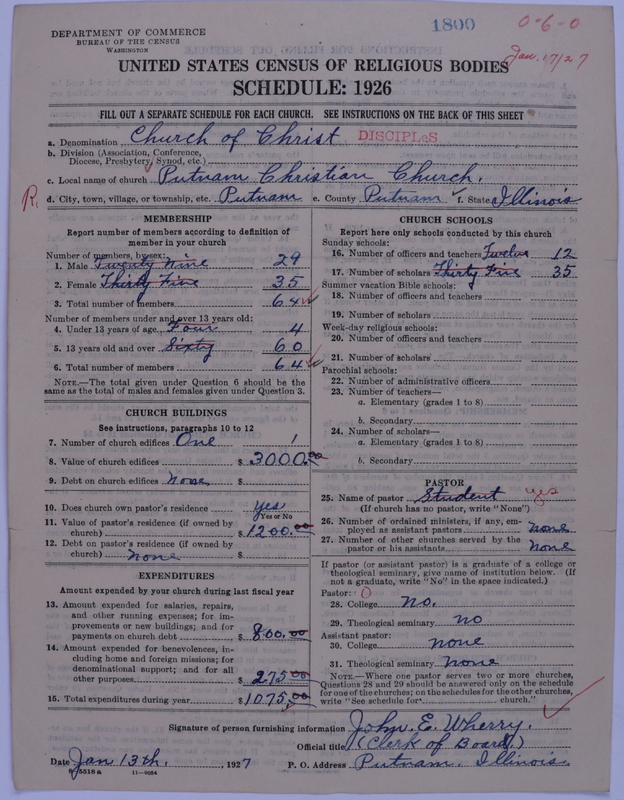 1800
0-6-0
Jan. 17/27
DEPARTMENT OF COMMERCE
BUREAU OF THE CENSUS
WASHINGTON
UNITED STATES CENSUS OF RELIGIOUS BODIES
SCHEDULE: 1926
FILL OUT A SEPARATE SCHEDULE FOR EACH CHURCH. SEE INSTRUCTIONS ON THE BACK OF THIS SHEET
a. Denomination Church of Christ DISCIPLES
b. Division (Association, Conference,
Diocese, Presbytery, Synod, etc.)
c. Local name of church Putnam Christian Church.
R. d. City, town, village, or township, etc. Putnam e. County Putnam f. State Illinois
MEMBERSHIP
Report number of members according to definition of
member in your church
Number of members, by sex:
1. Male Twenty Nine 29
2. Female Thirty Five 35
3. Total number of members 64
Number of members under and over 13 years old:
4. Under 13 years of age Four 4
5. 13 years old and over Sixty 60
6. Total number of members 64
NOTE.—The total given under Question 6 should be
same as the total of males and females given under Question 3.
CHURCH BUILDINGS
See instructions, paragraphs 10 to 12
7. Number of church edifices One 1
8. Value of church edifices $ 3000.00
9. Debt on church edifices none $
10. Does church own pastor's residence yes
Yes or No
11. Value of pastor's residence (if owned by
church) $ 1200.00
12. Debt on pastor's residence (if owned by
church) none $
EXPENDITURES
Amount expended by your church during last fiscal year
13. Amount expended for salaries, repairs,
and other running expenses; for im-
provements or new buildings; and for
payments on church debt $ 800.00
14. Amount expended for benevolences, in-
cluding home and foreign missions; for
denominational support; and for all
other purposes $ 275.00
15. Total expenditures during year $ 1075.00
CHURCH SCHOOLS
Report here only schools conducted by this church
Sunday schools:
16. Number of officers and teachers Twelve 12
17. Number of scholars Thirty Five 35
Summer vacation Bible schools:
18. Number of officers and teachers
19. Number of scholars
Week-day religious schools:
20. Number of officers and teachers
21. Number of scholars
Parochial schools:
22. Number of administrative officers
23. Number of teachers—
a. Elementary (grades 1 to 8)
b. Secondary
24. Number of scholars—
a. Elementary (grades 1 to 8)
b. Secondary
PASTOR
25. Name of pastor Student yes
(If church has no pastor, write "None")
26. Number of ordained ministers, if any, em-
ployed as assistant pastors none
27. Number of other churches served by the
pastor or his assistants none
If pastor (or assistant pastor) is a graduate of a college or
theological seminary, give name of institution below. (If
not a graduate, write "No" in the space indicated.)
Pastor: 0
28. College no.
29. Theological seminary no
Assistant pastor:
30. College none
31. Theological seminary none
NOTE.—Where one pastor serves two or more churches,
Questions 28 and 29 should be answered only on the schedule
for one of the churches; on the schedules for the other churches,
write "See schedule for church."
Signature of person furnishing information John E. Wherry.
Official title (Clerk of Board.)
Date Jan 13th., 1927 P. O. Address Putnam, Illinois.
8-5518 a 11-9054